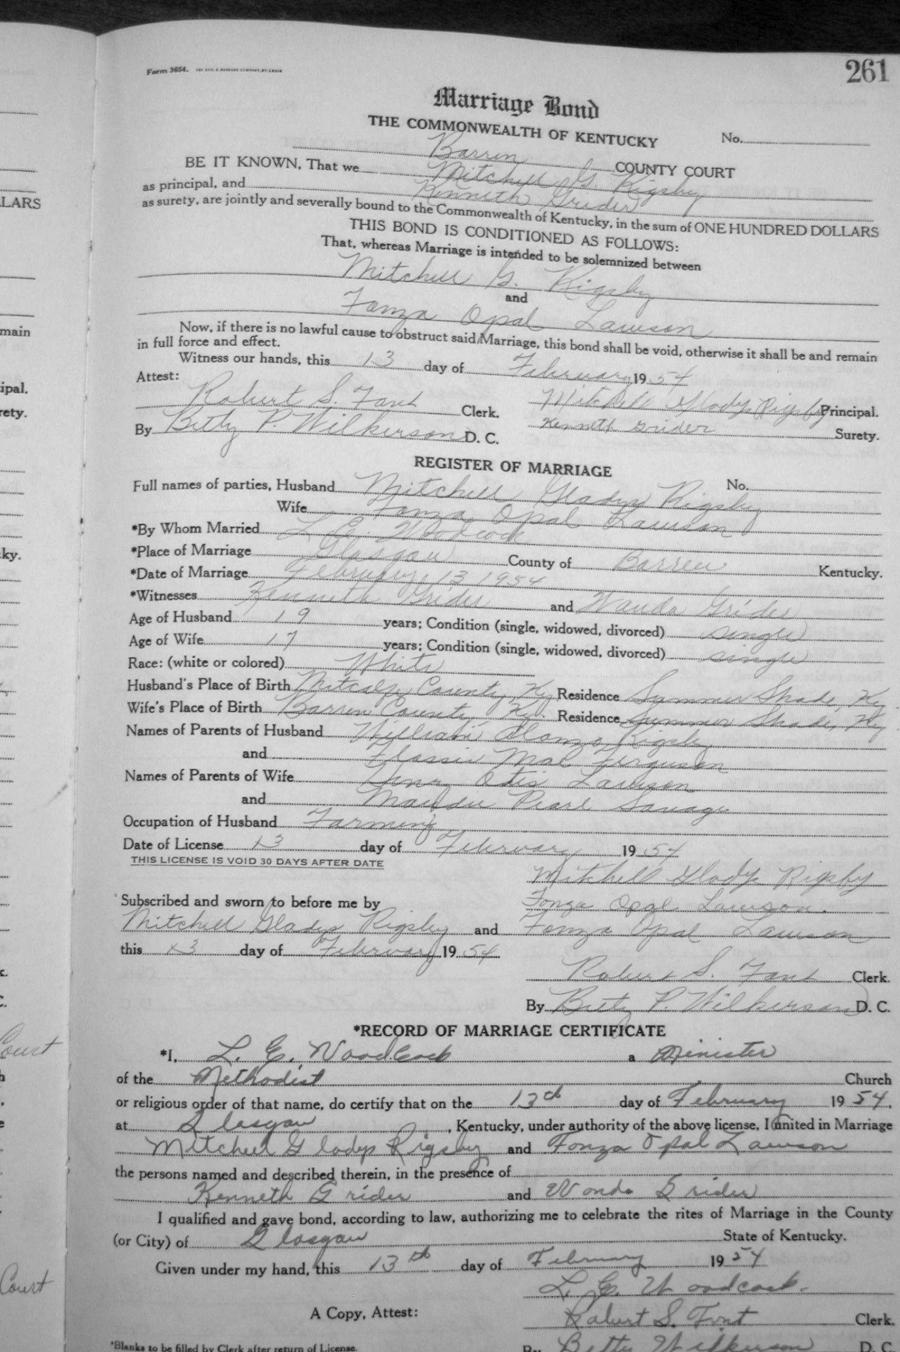 261
Form 3654.
Marriage Bond
THE COMMONWEALTH OF KENTUCKY No.
Barren COUNTY COURT
BE IT KNOWN, That we Mitchell G. Rigsby
as principal, and Kenneth Grider
as surety, are jointly and severally bound to the Commonwealth of Kentucky, in the sum of ONE HUNDRED DOLLARS
THIS BOND IS CONDITIONED AS FOLLOWS:
That, whereas Marriage is intended to be solemnized between
Mitchell G. Rigsby
and
Fonza Opal Lawson
Now, if there is no lawful cause to obstruct said Marriage, this bond shall be void, otherwise it shall be and remain
in full force and effect.
Witness our hands, this 13 day of February 1954
Attest:
Robert S. Fant Clerk. Mitchell Gladys Rigsby Principal.
By Betty P. Wilkerson D. C. Kenneth Grider Surety.
REGISTER OF MARRIAGE
Full names of parties, Husband Mitchell Gladys Rigsby No.
Wife Fonza Opal Lawson
*By Whom Married L. E. Woodcock
*Place of Marriage Glasgow County of Barren Kentucky.
*Date of Marriage February 13 1954
*Witnesses Kenneth Grider and Wanda Grider
Age of Husband 19 years; Condition (single, widowed, divorced) single
Age of Wife 17 years; Condition (single, widowed, divorced) single
Race: (white or colored) White
Husband's Place of Birth Metcalfe County, Ky. Residence Summer Shade, Ky
Wife's Place of Birth Barren County, Ky. Residence Summer Shade, Ky
Names of Parents of Husband William Alonzo Rigsby
and Flassie Mae Ferguson
Names of Parents of Wife Otis Lawson
and Maudie Pearl Savage
Occupation of Husband Farming
Date of License 13 day of February 1954
THIS LICENSE IS VOID 30 DAYS AFTER DATE
Mitchell Gladys Rigsby
Subscribed and sworn to before me by Fonza Opal Lawson.
Mitchell Gladys Rigsby and Fonza Opal Lawson
this 13 day of February 1954
Robert S. Fant Clerk.
By Betty P. Wilkerson D. C.
*RECORD OF MARRIAGE CERTIFICATE
*I, L. E. Woodcock a Minister
of the Methodist Church
or religious order of that name, do certify that on the 13th day of February 1954,
at Glasgow, Kentucky, under authority of the above license, I united in Marriage
Mitchell Gladys Rigsby and Fonza Opal Lawson
the persons named and described therein, in the presence of
Kenneth Grider and Wonda Grider
I qualified and gave bond, according to law, authorizing me to celebrate the rites of Marriage in the County
(or City) of Glasgow State of Kentucky.
Given under my hand, this 13th day of February 1954
L. E. Woodcock.
A Copy, Attest: Robert S. Fant Clerk.
By Betty Wilkerson D. C.
*Blanks to be filled by Clerk after return of License.